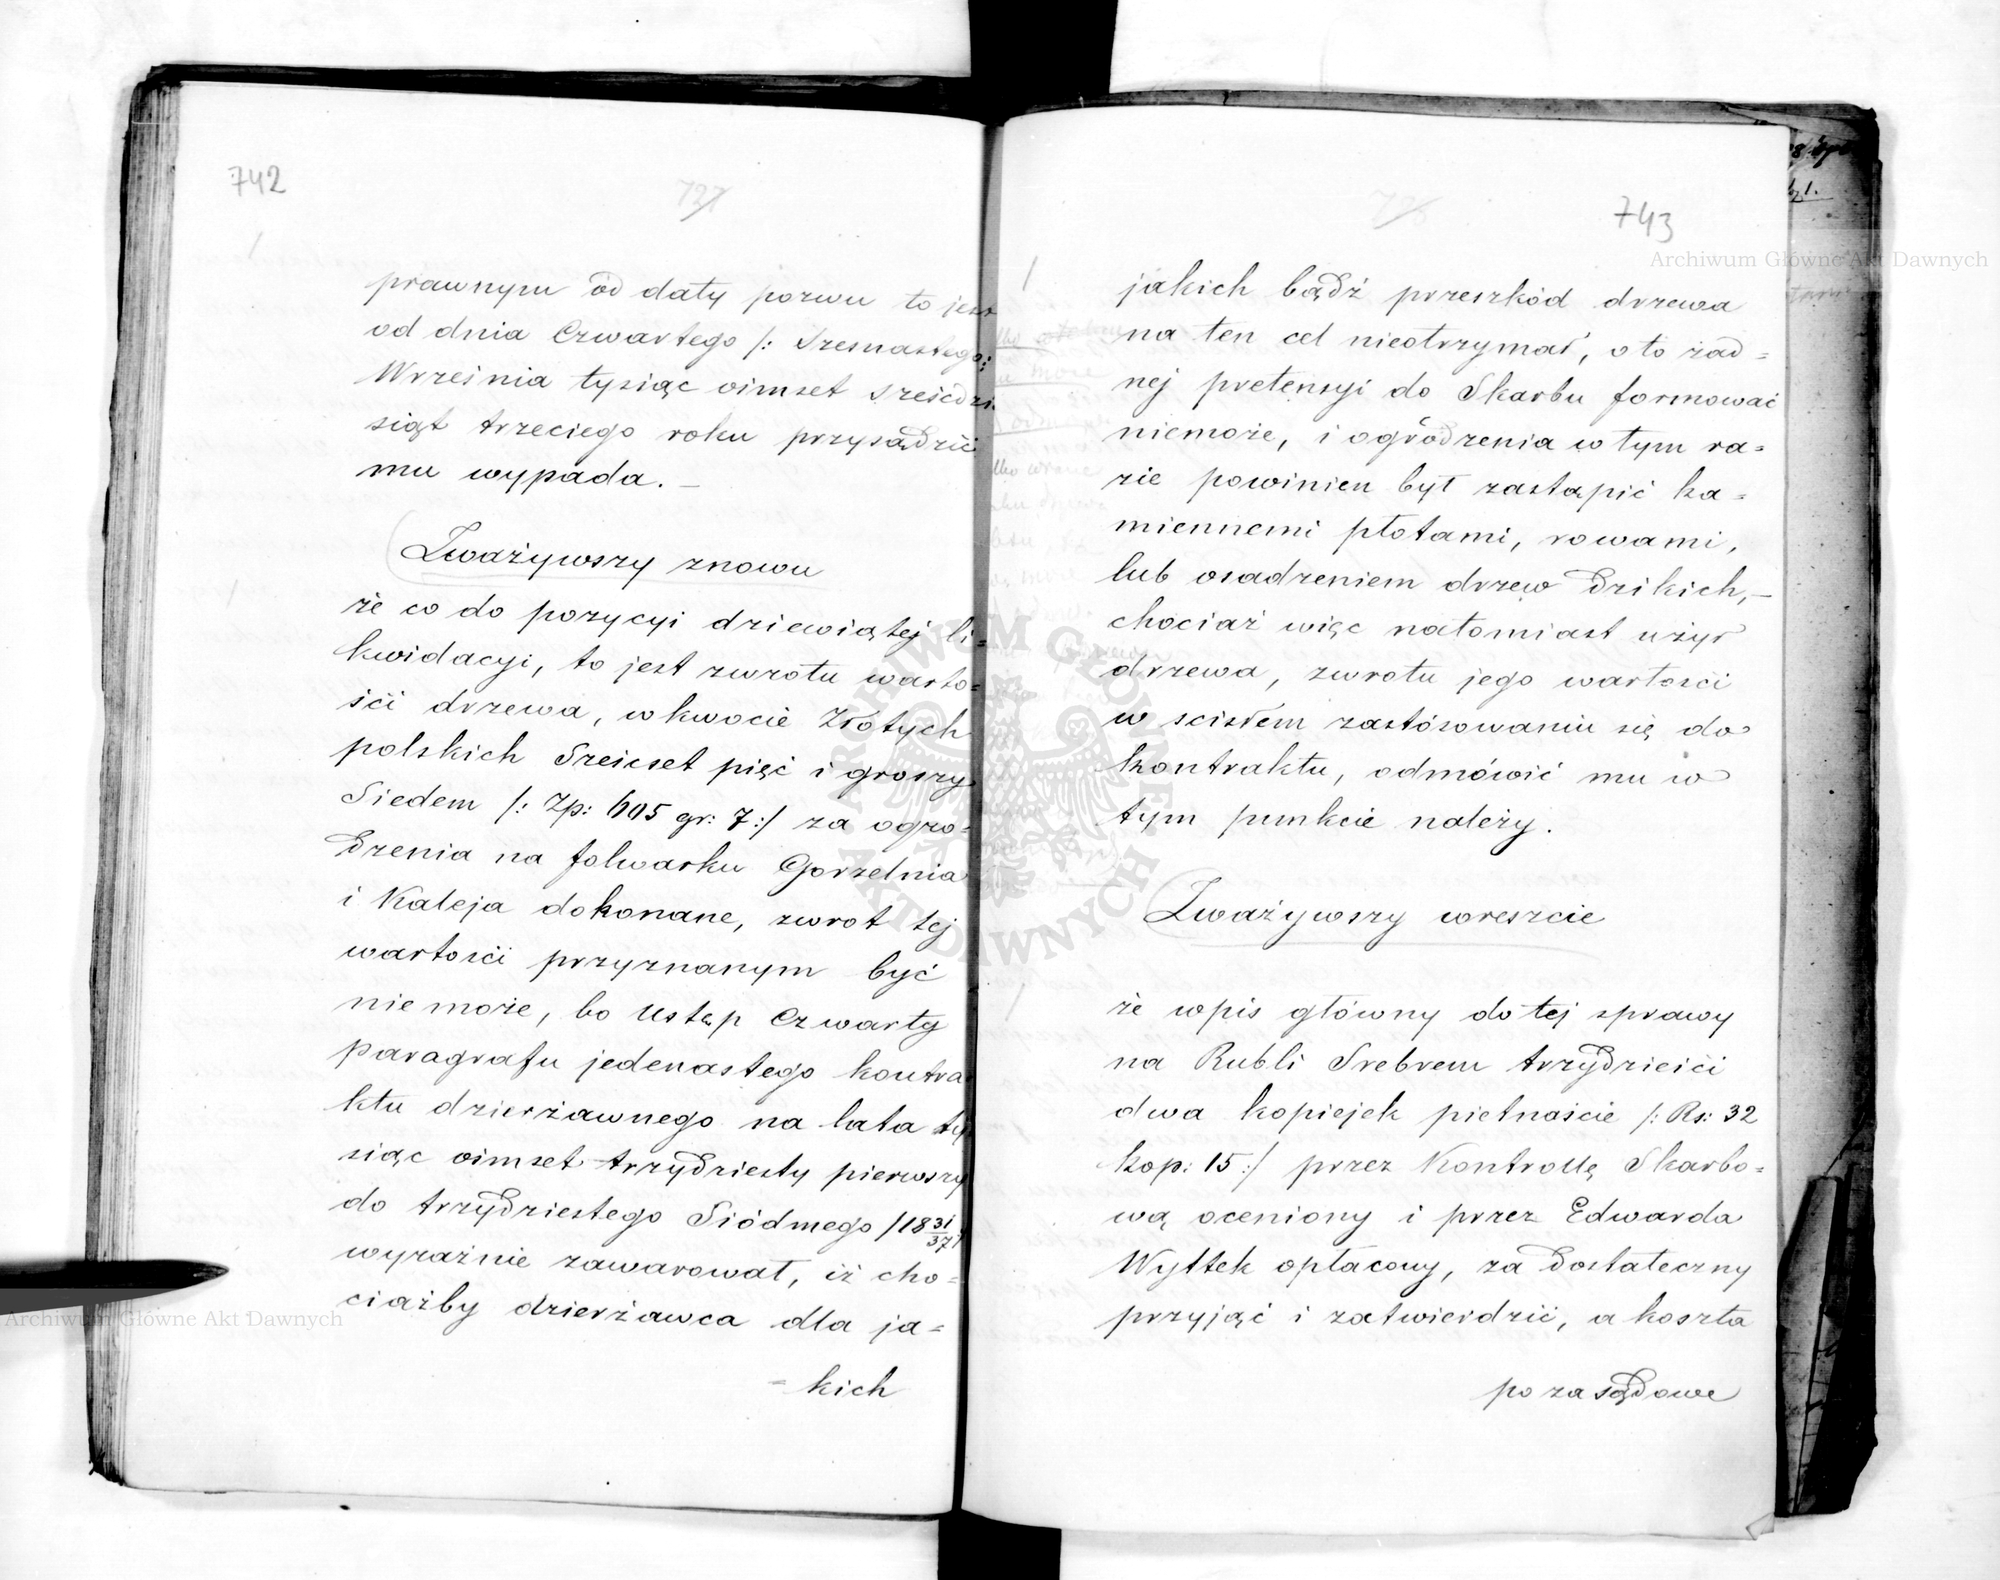 742
727
prawnym od daty pozwu to jest
od dnia Czwartego /: Szesnastego :
Września tysiąc ośmset sześćdzie
siąt trzeciego roku przysądzić
mu wypada. —
Zważywszy znowu
że co do pozycyi dziewiątej li=
kwidacyi, to jest zwrotu warto=
ści drzewa, w kwocie Złotych
polskich Sześćset pięć i groszy
Siedem /: Zp: 605 gr: 7 :/ za ogro=
dzenia na folwarku Gorzelnia
i Kaleja dokonane, zwrot tej
wartości przyznanym być
nie może, bo Ustęp Czwarty
paragrafu jedenastego kontra
ktu dzierżawnego na lata ty
siąc ośmset trzydziesty pierwszy
do trzydziestego Siódmego /18 31/37 /
wyraźnie zawarował, iż cho=
ciażby dzierżawca dla ja=
= kich
743
jakich bądź przeszkód drzewa
na ten cel nieotrzymał, o to żad=
nej pretensyi do Skarbu formować
niemoże, i ogrodzenia w tym ra=
zie powinien był zastąpić ka=
miennemi płotami, rowami,
lub osadzeniem drzew dzikich, —
chociaż więc natomiast użył
drzewa, zwrotu jego wartości
w scisłem zastósowaniu się do
kontraktu, odmówić mu w
tym punkcie należy.
Zważywszy wreszcie
że wpis główny do tej sprawy
na Rubli Srebrem trzydzieści
dwa kopiejek piętnaście /: Rs: 32
kop: 15 :/ przez Kontrollę Skarbo=
wą oceniony i przez Edwarda
Wyttek opłacony, za dostateczny
przyjąć i zatwierdzić, a koszta
pozasądowe
Archiwum Główne Akt Dawnych
Archiwum Główne Akt Dawnych
ARCHIWUM GŁÓWNE AKT DAWNYCH